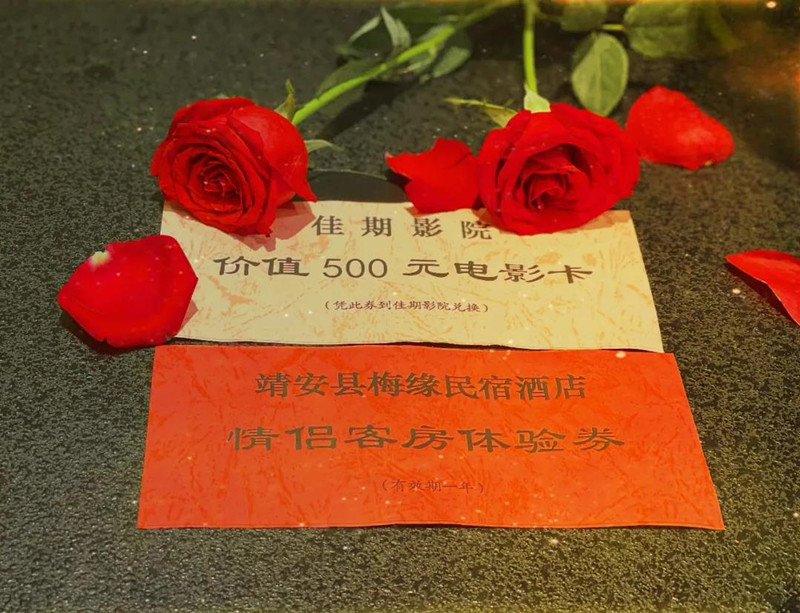 佳期影院
价值 500 元电影卡
(凭此券到佳期影院兑换)
靖安县梅缘民宿酒店
情侣客房体验券
(有效期一年)